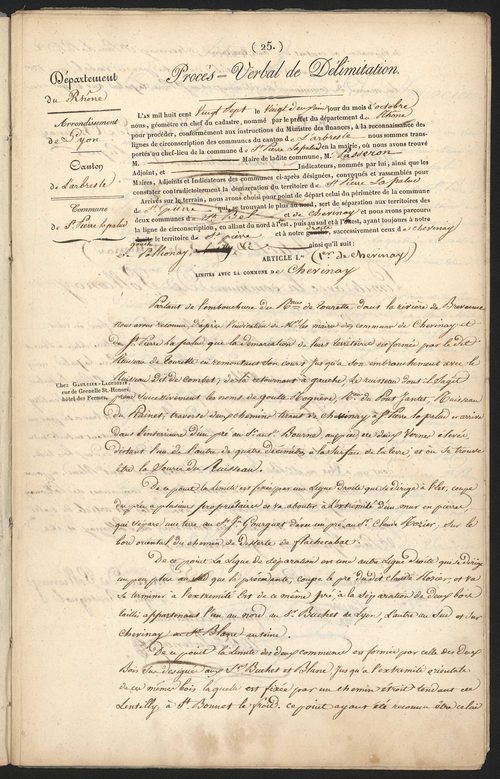 (25.)
Procès-Verbal de Délimitation.
Département
du Rhône
Arrondissement
de Lyon
Canton
de Larbresle
Commune
de St. Pierre la palud
L'AN mil huit cent vingt Sept le vingt deuxième jour du mois d'octobre
nous, géomètre en chef du cadastre, nommé par le préfet du département de Rhône
pour procéder, conformément aux instructions du Ministre des finances, à la reconnaissance des
lignes de circonscription des communes du canton de Larbresle nous sommes trans-
portés au chef-lieu de la commune de St. Pierre Lapalud en la mairie, où nous avons trouvé
M. Maire de ladite commune, M. Lasseron
Adjoint, et Indicateurs, nommés par lui, ainsi que les
Maires, Adjoints et Indicateurs des communes ci-après désignées, convoqués et rassemblés pour
constater contradictoirement la démarcation du territoire de St. Pierre La palud
Arrivés sur le terrain, nous avons choisi pour point de départ celui du périmètre de la commune
de St. Pierre qui, se trouvant le plus au nord, sert de séparation aux territoires des
deux communes de St. Bel et de Chevinay et nous avons parcouru
la ligne de circonscription, en allant du nord à l'est, puis au sud et à l'ouest, ayant toujours à notre
gauche le territoire de St. pierre et à notre droite, successivement ceux de Chevinay
Pollionay ainsi qu'il suit :
ARTICLE 1er (1er de Chevinay)
LIMITES AVEC LA COMMUNE DE Chevinay
Chez GAULTIER-LAGUIONIE,
rue de Grenelle St.-Honoré,
hôtel des Fermes.
Partant de l'embouchure du Rau de tourette dans la rivière de Brevenne
nous avons reconnu d'après l'indication de Mrs les maires des communes de Chevinay et
de St. Pierre La palud, que la démarcation de leur territoire est formée par le dit
Ruisseau de Tourette en remontant son cours jusqu'à son embranchement avec le
Ruisseau dit de Combet; de là retournant à gauche, le ruisseau dont il s'agit
prend successivement les noms de goute Mognere, Rau du Pont Jantet, Ruisseau
du Rainet, traverse d'un chemin tirant de chevinay à St. Pierre la palud et arrive
dans l'intérieur d'un pré au Sr. Bourne, auprès de deux Vernes élevés
distant l'un de l'autre de quatre décimètres à la surface de la terre, et où se trouve
être la Source du Ruisseau.
De ce point la limite est fixée par une ligne droite qui se dirige à l'Est, coupe
du pré à plusieurs propriétaires et va aboutir à l'extrémité d'un mur en pierres
qui sépare une terre au Sr. Gourguet d'avec un pré au Sr. Claude Lozier, sur le
bord oriental du chemin de desserte de flachecabet :
De ce point la ligne de séparation est une autre ligne droite qui se dirige
un peu plus au sud que la précédente, coupe le pré du dit Claude Lozier et va
se terminer à l'extrémité Est de ce même pré, à la séparation de deux bois
taillis appartenant l'un au nord au Sr. Buchet de Lyon, L'autre au Sud et sur
Chevinay au Sr. Blanc
De ce point la limite des deux communes est formée par celle des deux
Bois Sus désignés aux Srs Buchet et Blanc jusqu'à l'extrémité orientale
de ces mêmes bois laquelle est fixée par un chemin étroit tendant de
Lentilly, à St. Bonnet le froid. ce point ayant été reconnu être celui